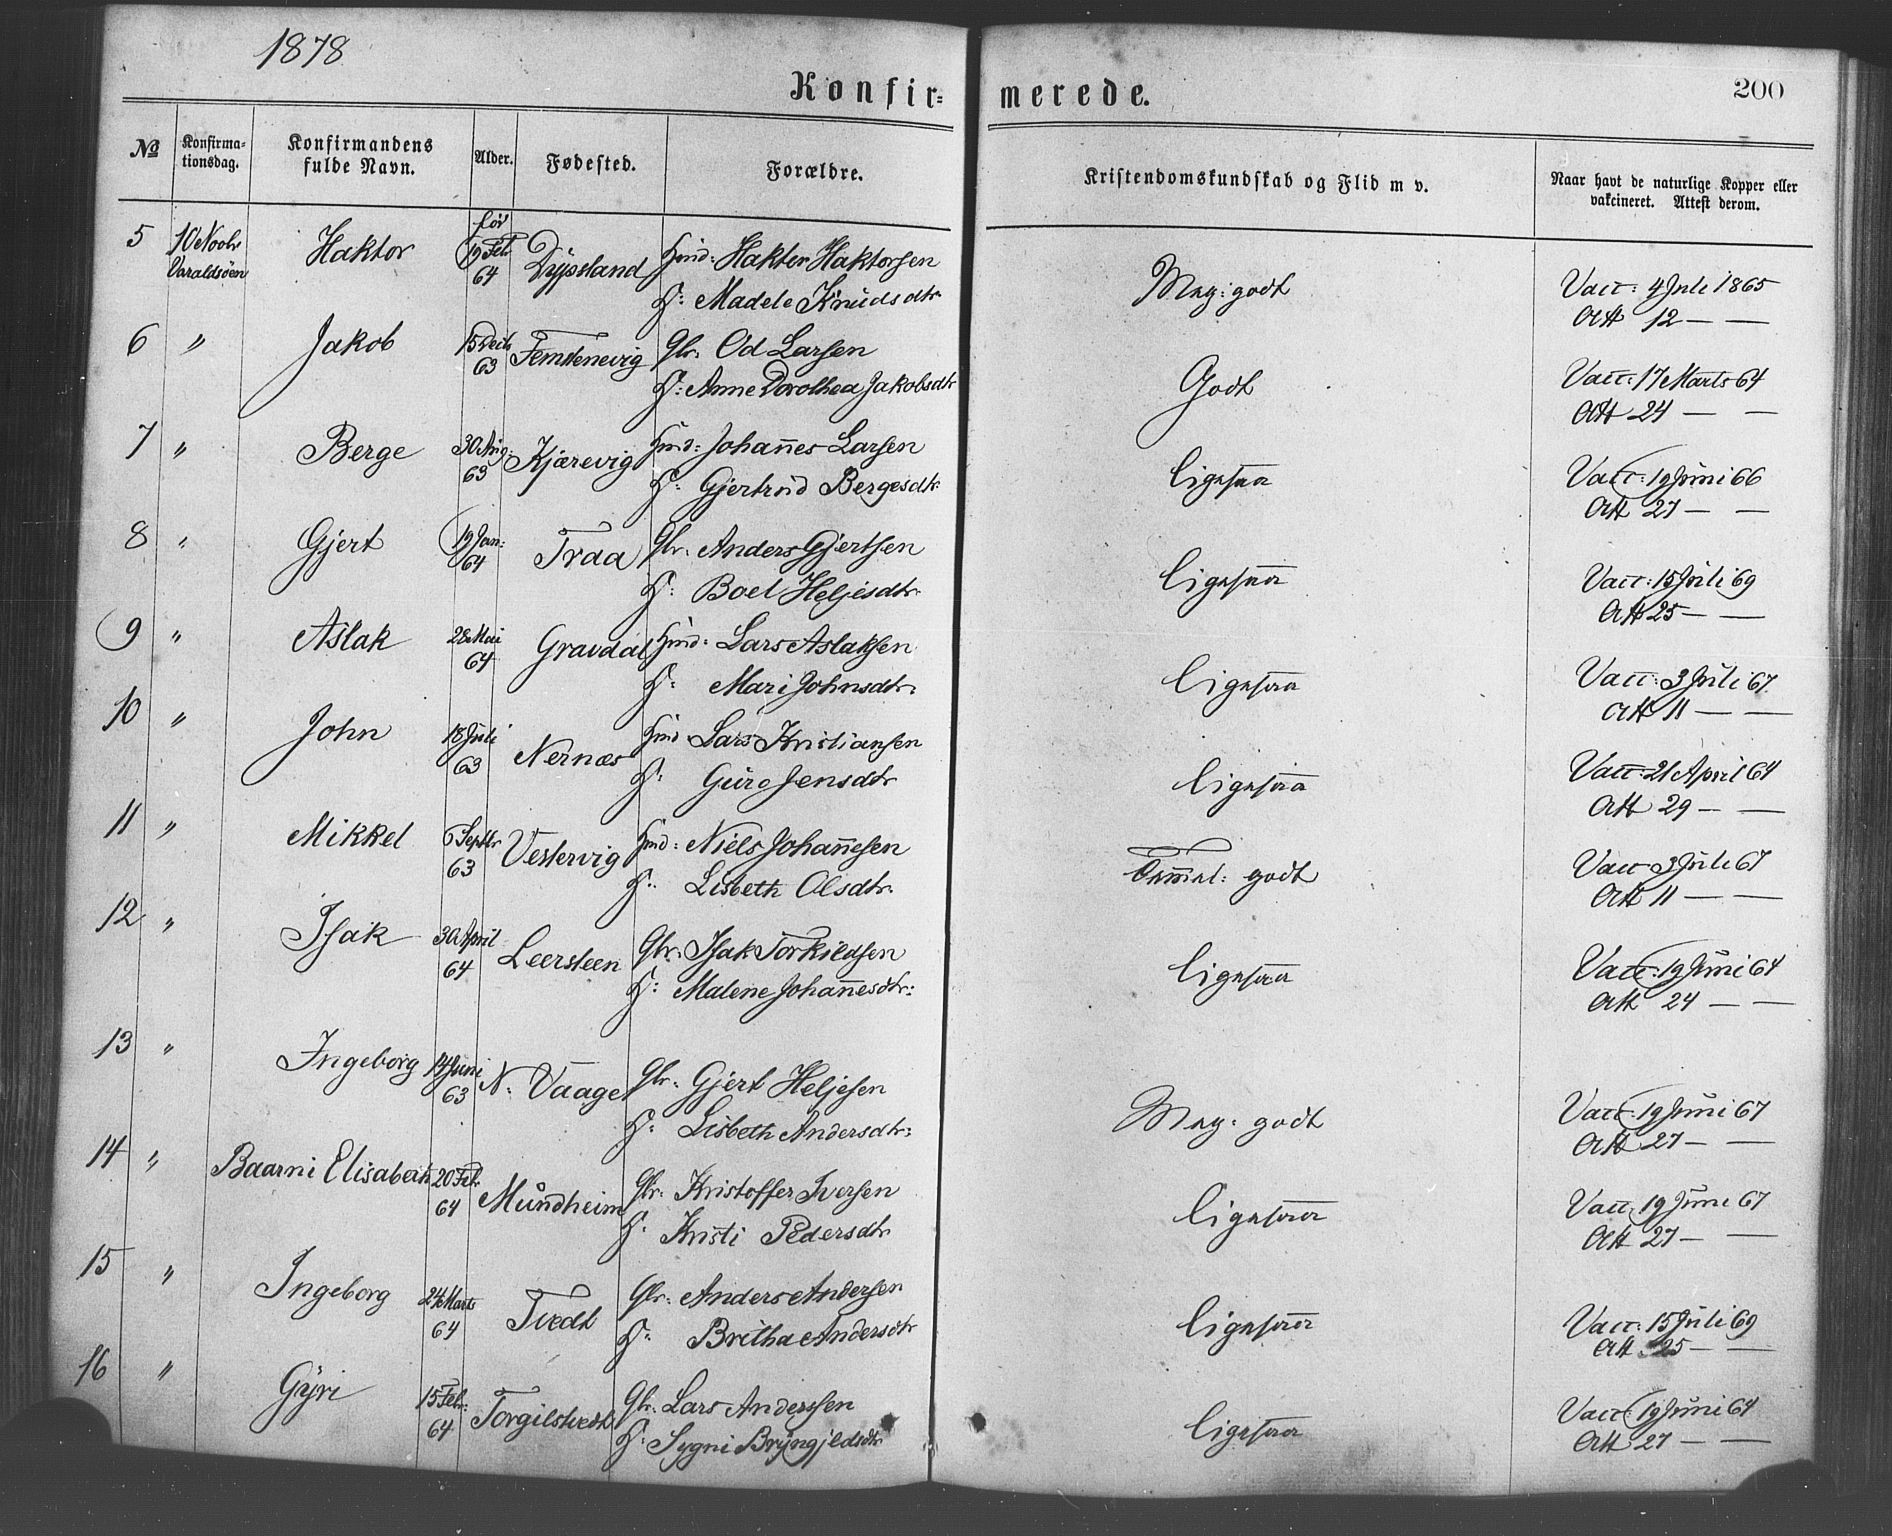 1878
Konfir= merede.
200
No Konfirma= tionsdag. Konfirmandens fulde Navn. Alder. Fødested. Forældre. Kristendomskundskab og Flid m v. Naar havt de naturlige Kopper eller vakcineret. Attest derom.
5 10 Novbr Varaldsöen Haktor før 19 Feb 64 Dypsland Huusd: Hakter Haktorsen Meg: godt Vacc: 4 Juli 1865
H: Madele Knudsdtr Att 12 — —
6 " Jakob 15 Decb 63 Femstenevig Gbr. Od Larsen Godt Vacc: 17 Marts 64
H: Anne Dorothea Jakobsdtr Att 24 — —
7 " Berge 30 Aug: 63 Kjærevig Huusd: Johan̄nes Larsen Ligesaa Vacc: 19 Juni 66
H: Gjertrud Bergesdtr. Att 27 — —
8 " Gjert 19 Jan: 64 Traa Gbr. Anders Gjertsen Ligesaa Vacc: 15 Juli 69
H: Boel Heljesdtr. Att 25 — —
9 " Aslak 28 Mai 64 Gravdal Huusd: Lars Aslaksen Ligesaa Vacc: 3 Juli 67
H: Mari Johnsdtr. Att 11 — —
10 " John 18 Juli 63 Nernæs Huusd: Lars Kristiansen Ligesaa Vacc: 21 April 64
H: Guro Jensdtr Att 29 — —
11 " Mikkel 6 Septbr 63 Vestervig Huusd: Niels Johan̄esen Tem̄mel: godt Vacc: 3 Juli 67
H: Lisbeth Olsdtr. Att 11 — —
12 " Isak 30 April 64 Leersteen Gbr: Isak Torkildsen Ligesaa Vacc: 19 Juni 64
H: Malene Johan̄nesdtr: Att 24 — —
13 " Ingeborg 14 Juni 63 N: Vaage Gbr: Gjert Heljesen Meg: godt Vacc: 19 Juni 67
H: Lisbeth Andersdtr: Att 27 — —
14 " Baarni Elisabeth 20 Feb. 64 Mundheim Gbr: Kristoffer Iversen Ligesaa Vacc: 19 Juni 67
H: Kristi Pedersdtr Att 27 — —
15 " Ingeborg 24 Marts 64 Tvedt Gbr: Anders Andersen Ligesaa Vacc: 15 Juli 69
H: Britha Andersdtr Att 25 — —
16 " Gyri 15 Feb: 64 Torgilstvedt Gbr: Lars Anderssen Ligesaa Vacc: 19 Juni 64
H: Sygni Bryngjeldsdtr Att 27 — —